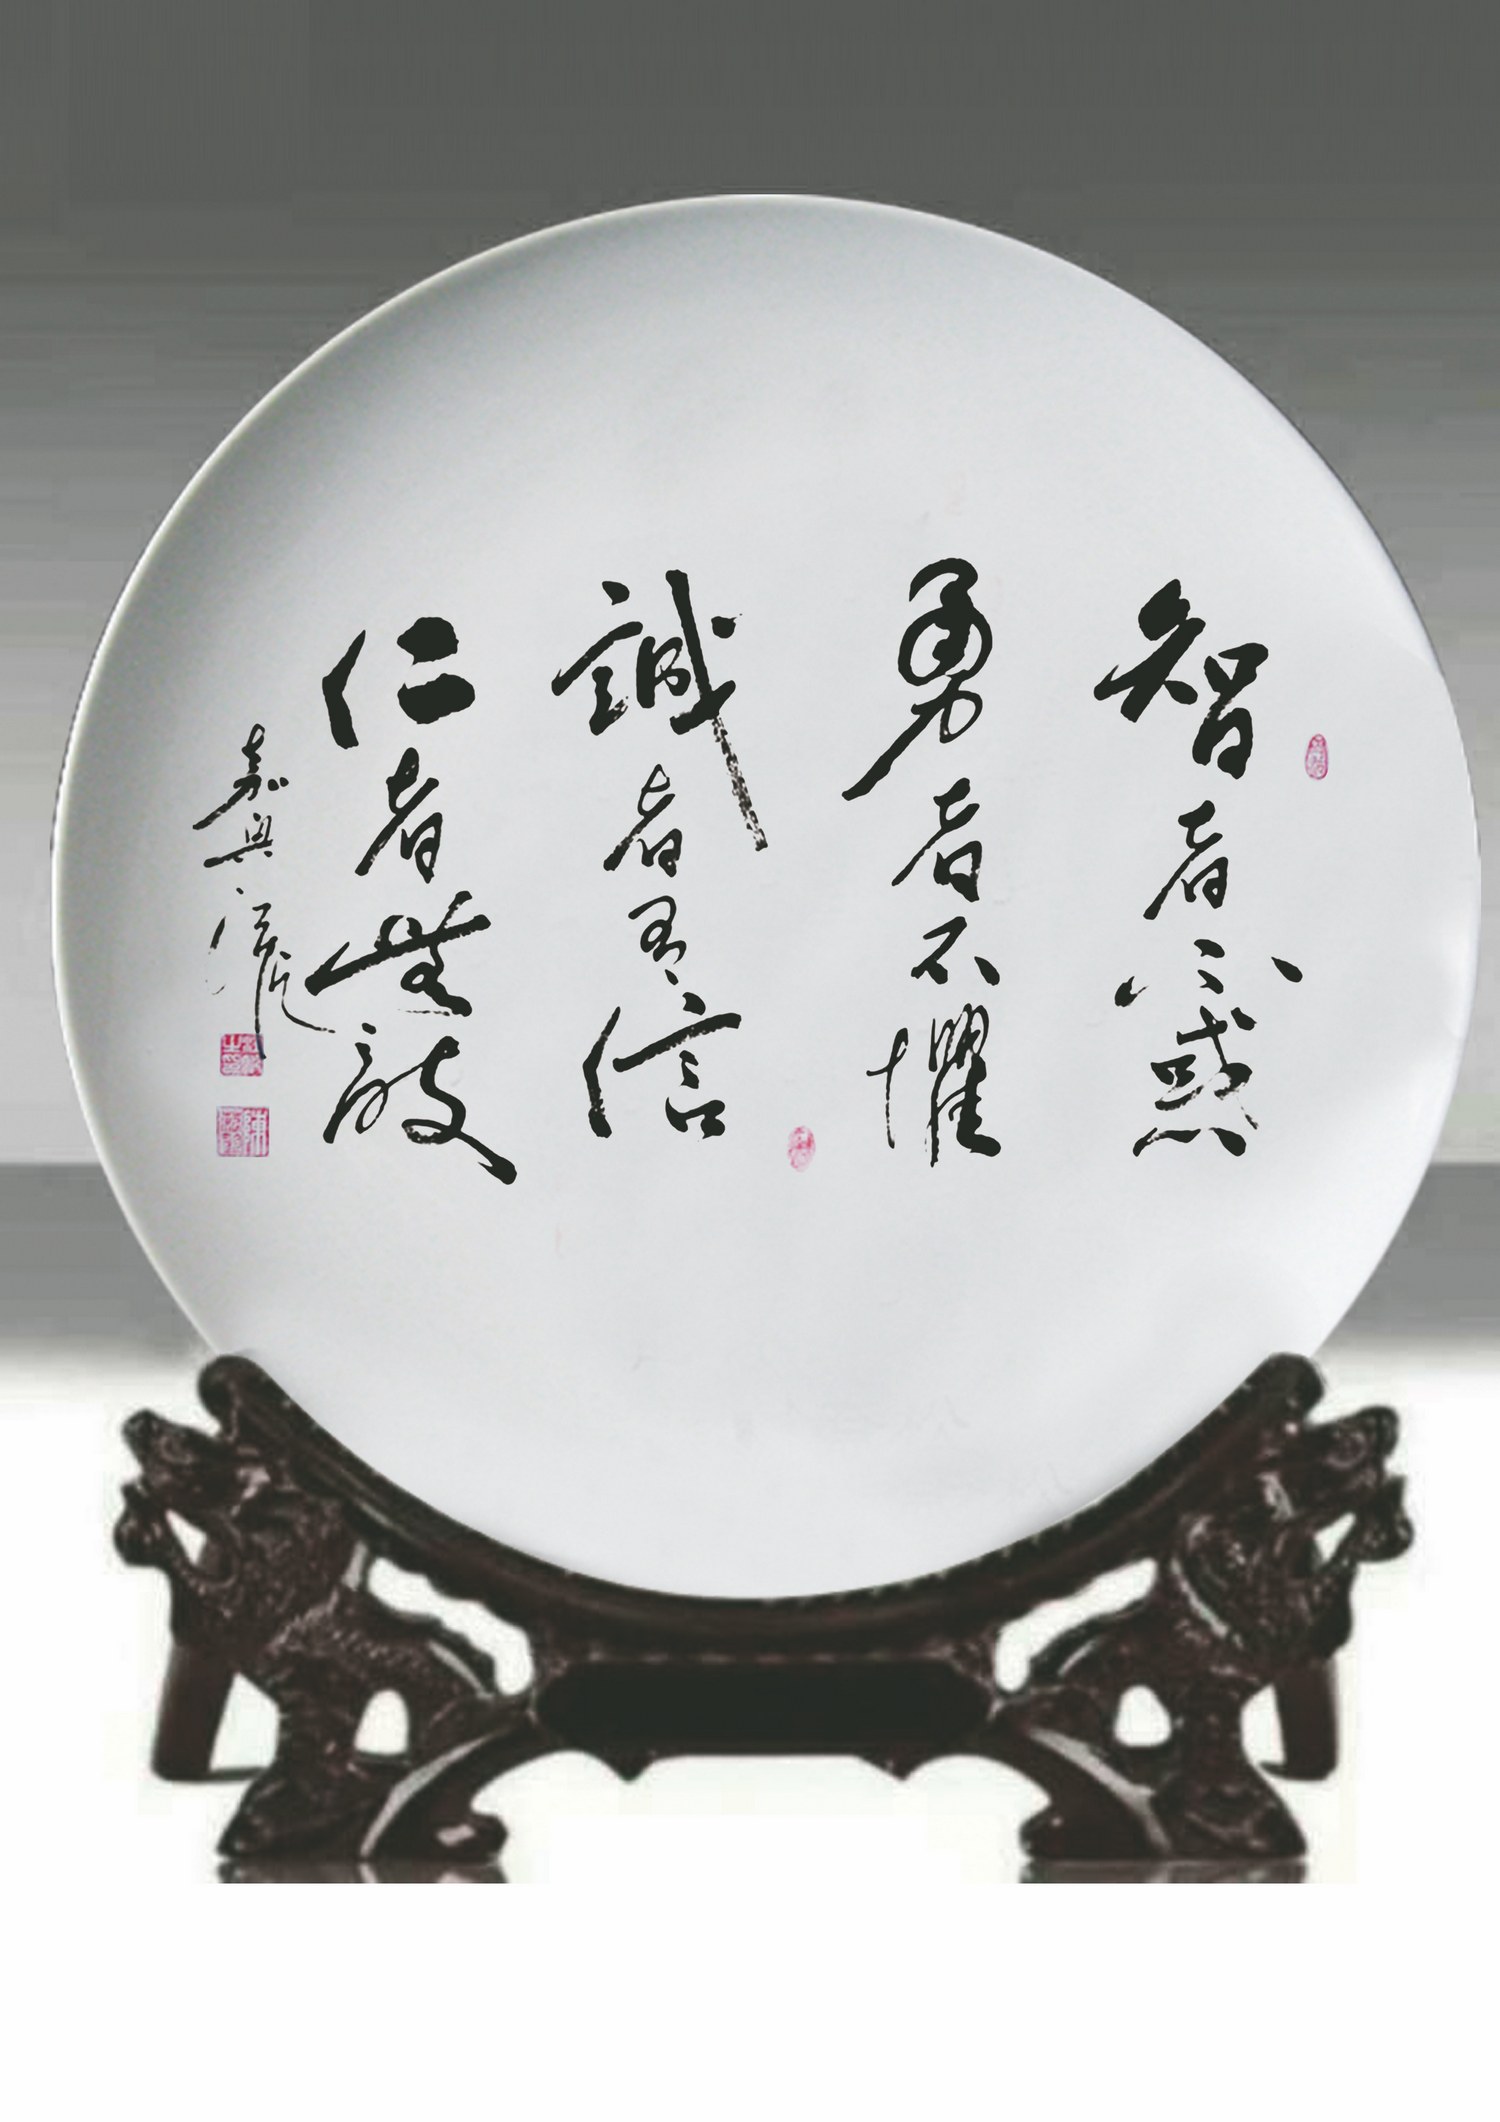 智者不惑
勇者不懼
誠者有信
仁者無敵
嘉興